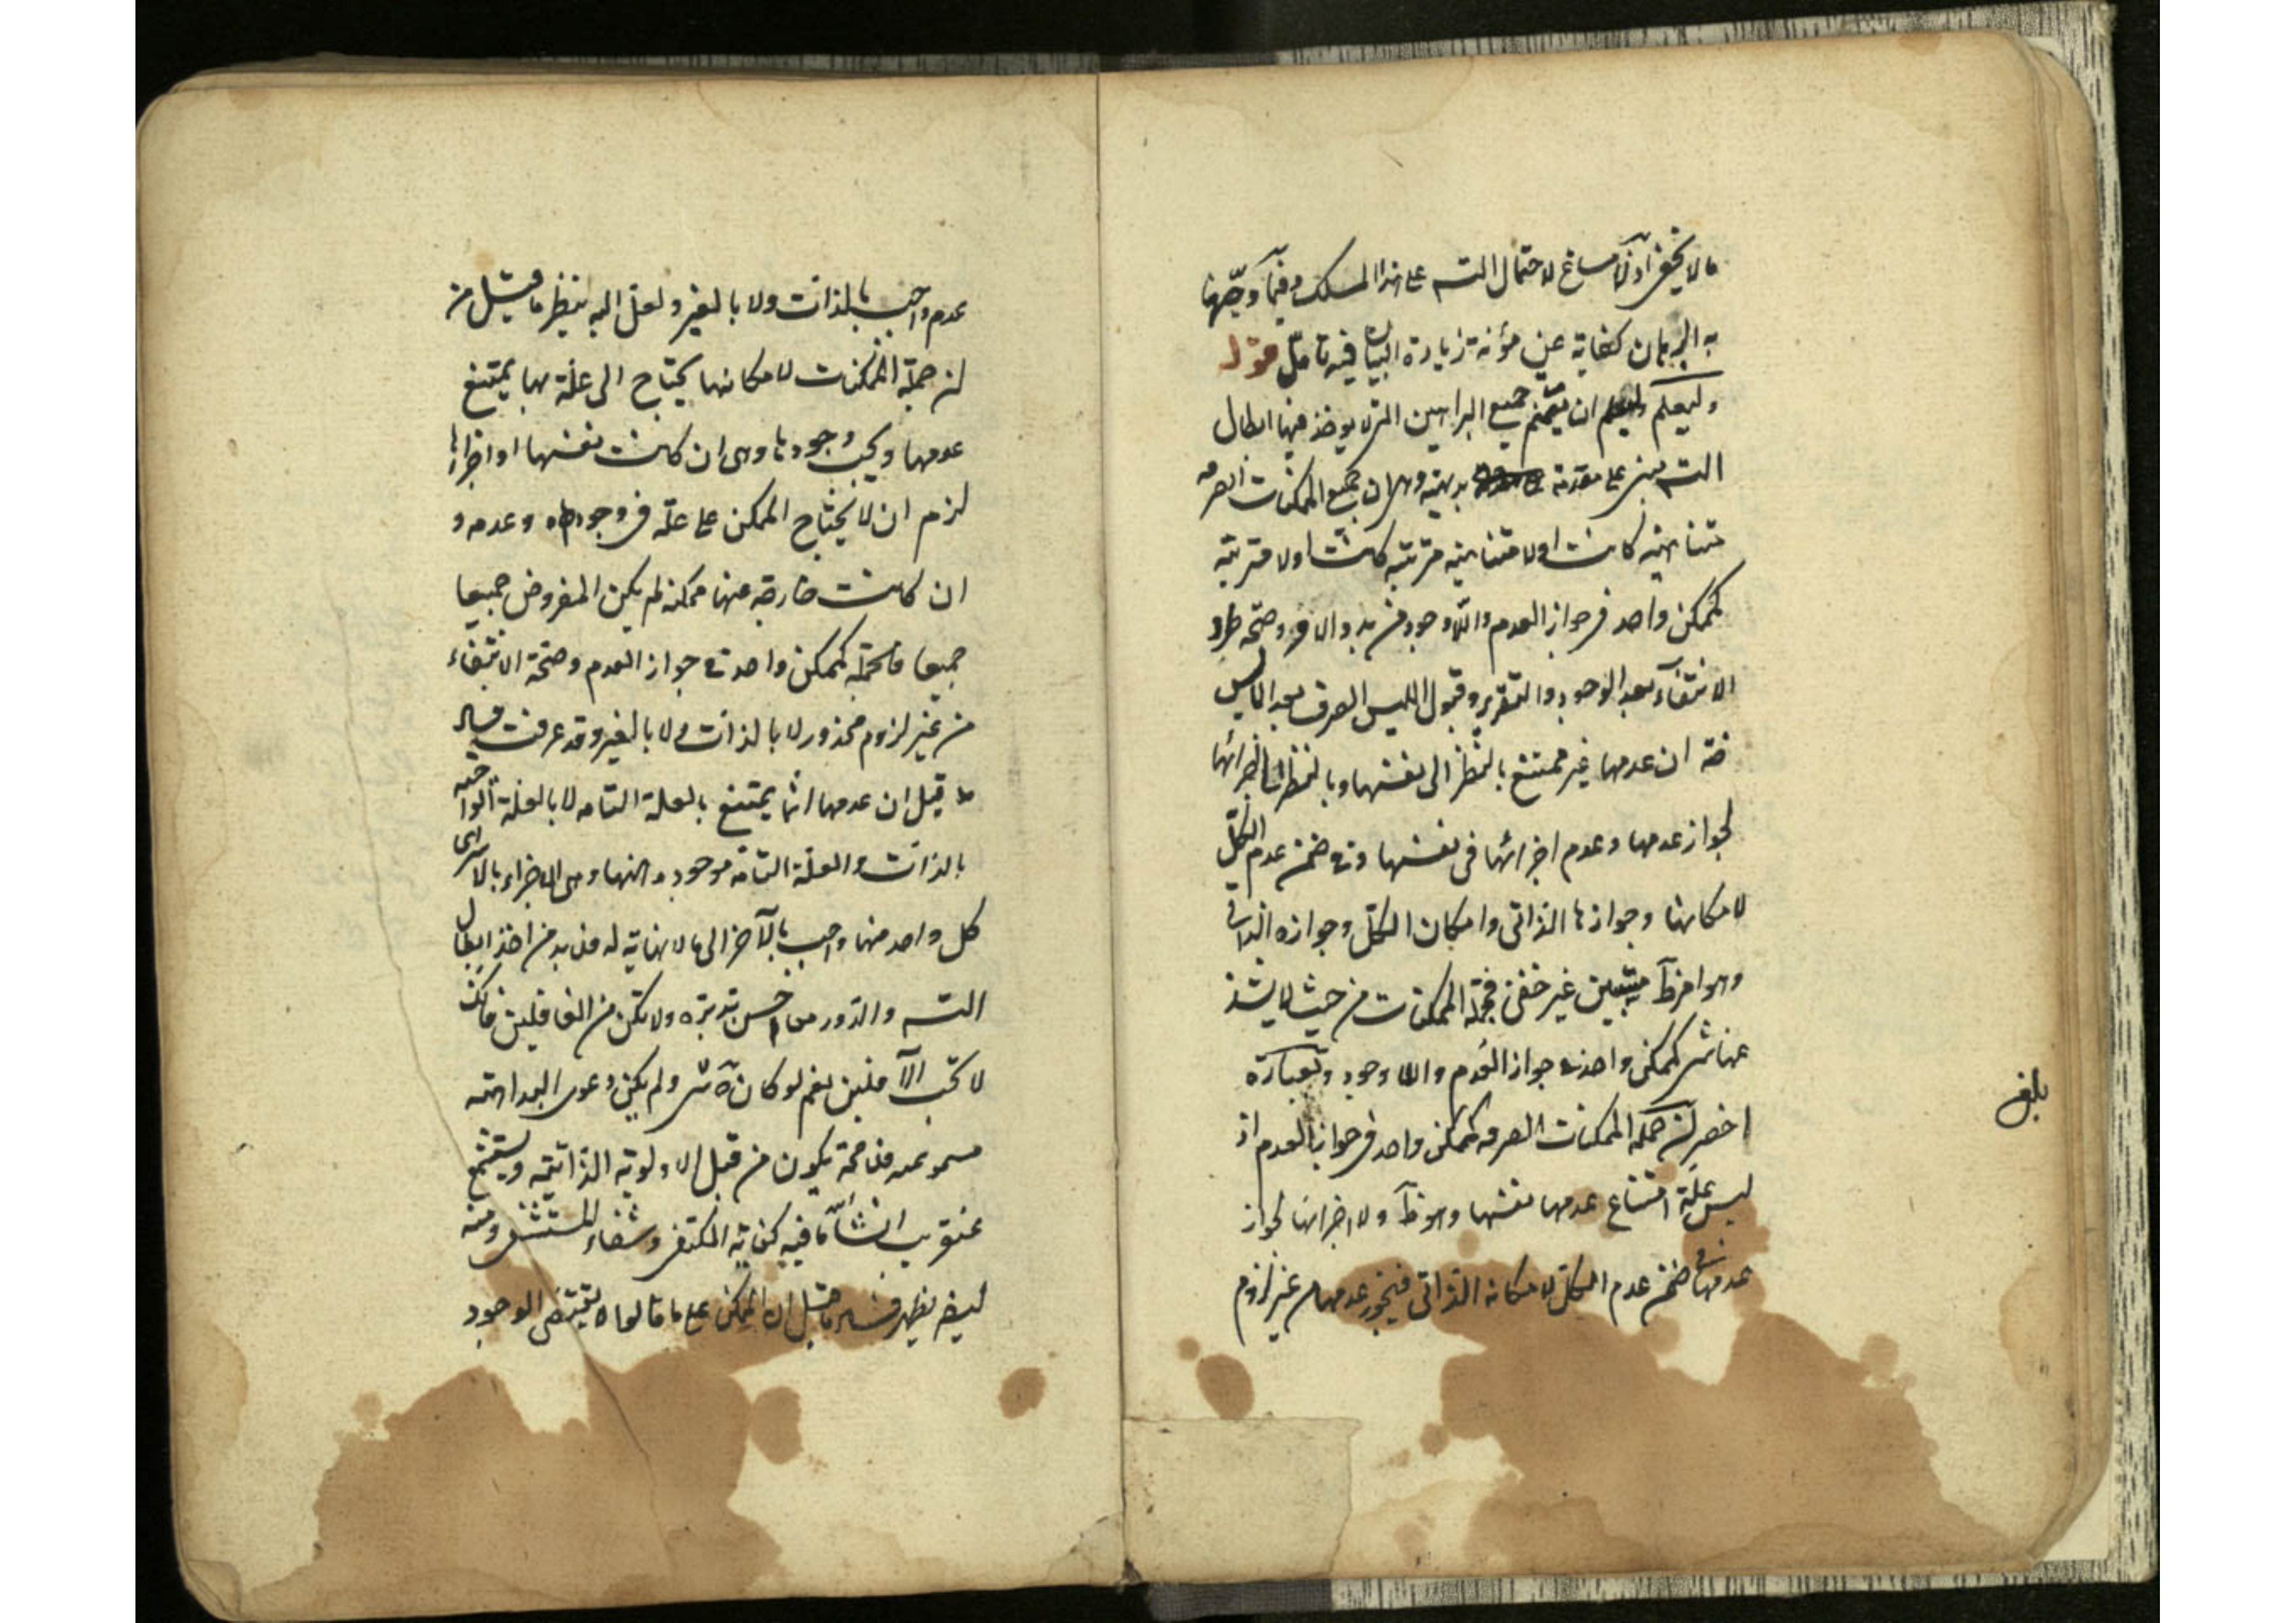 ما لا يخفى اذ لا مساغ لاحتمال التسـ على هذا المسلك وفيما وجّهنا
به البرهان كفاية عن مؤنة زيادة البيان فيه تأمّل قوله
وليعلم ان جميع البراهين التى يوخذ فيها ابطال
التسـ مبنى على مقدمة بديهية وهى ان جميع الممكنات الصرفه
متناهية كانت او لا متناهية مترتبة كانت او لا مترتبة
كممكن واحد فى جواز العدم واللاوجود من بدو الامر وصحّة طرو
الانتفاء بعد الوجود والتقرير وقبول الليس الصرف بعد الايس
ان عدمها غير ممتنع بالنظر الى نفسها وبالنظر الى اجزائها
لجواز عدمها وعدم اجزائها فى نفسها وفى ضمن عدم الكلّ
لامكانها وجوازها الذاتى وامكان الكلّ وجوازه الذاتى
وهو امر غير خفى فجملة الممكنات من حيث لا يشذ
عنها شى كممكن واحد فى جواز العدم واللاوجود وبعبارة
اخصر لان جملة الممكنات الصرفه كممكن واحد فى جواز العدم اذ
ليس علّة امتناع عدمها نفسها وهو ظ ولا اجزائها لجواز
عدمها فى ضمن عدم الكلّ لامكانه الذاتى فيجوز عدمها من غير لزوم
بلغ
عدم واجب بالذات ولا بالغير ولعلّ اليه ينظر ما قيل من
ان جملة الممكنات لامكانها يحتاج الى علّة بها يمتنع
عدمها ويجب وجودها وهى ان كانت نفسها او اجزاءها
لزم ان لا يحتاج الممكن على علّة فى وجوده وعدمه و
ان كانت خارجة عنها ممكنة لم يكن المفروض جميعا
جميعا فالجملة كممكن واحد فى جواز العدم وصحّة الانتفاء
من غير لزوم محذور لا بالذات ولا بالغير وقد عرفت فساد
ما قيل ان عدمها انما يمتنع بالعلة التامه لا بالعلة الواجبة
بالذات والعلّة التامّة موجودة منها وهى الاجزاء بالاسرى
كل واحد منها واجب بالآخر الى ما لا نهاية له فلا بد من اخذ ابطال
التسـ والدور احسن تدبّره ولا تكن من الغافلين فانك
لا تحب الآفلين نعم لو كان شى ولم يكن دعوى البداهة
مسموعة فلا محة يكون من قبل الاولوية الذاتية وستسمع
عنقريب انشآ ما فيه كفاية للمكتفى وشفاء للمستشفى ومنه
ايضا يظهر فساد ما قيل ان الممكن على ما قالوا لا يقتضى الوجود